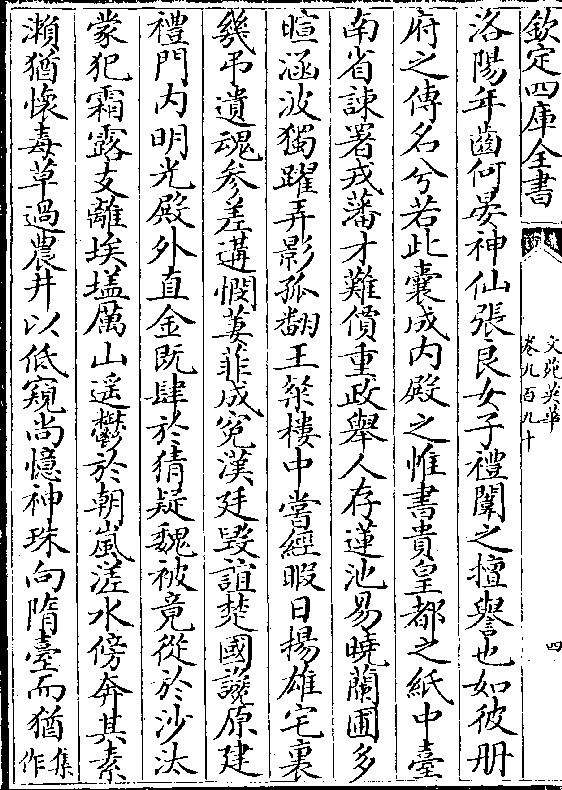 欽定四庫全書
文苑英華
卷九百九十
四
洛陽年齒何晏神仙張良女子禮闈之擅譽也如彼册
府之傳名兮若此囊成内殿之帷書貴皇都之紙中臺
南省諫署戎蕃才難價重政舉人存蓮池易曉蘭圃多
暄涵波獨躍弄影孤翻王粲樓中嘗經暇日揚雄宅裏
幾弔遺魂参差遘憫萋菲成寃漢廷毁誼楚國讒原建
禮門内明光殿外直金既肆於猜疑魏被竟從於沙汰
蒙犯霜露支離埃𡏖厲山遥鬱於朝嵐溠水傍奔其素
瀨猶懷毒草過農井以低窺尚憶神珠向隋臺而猶集作